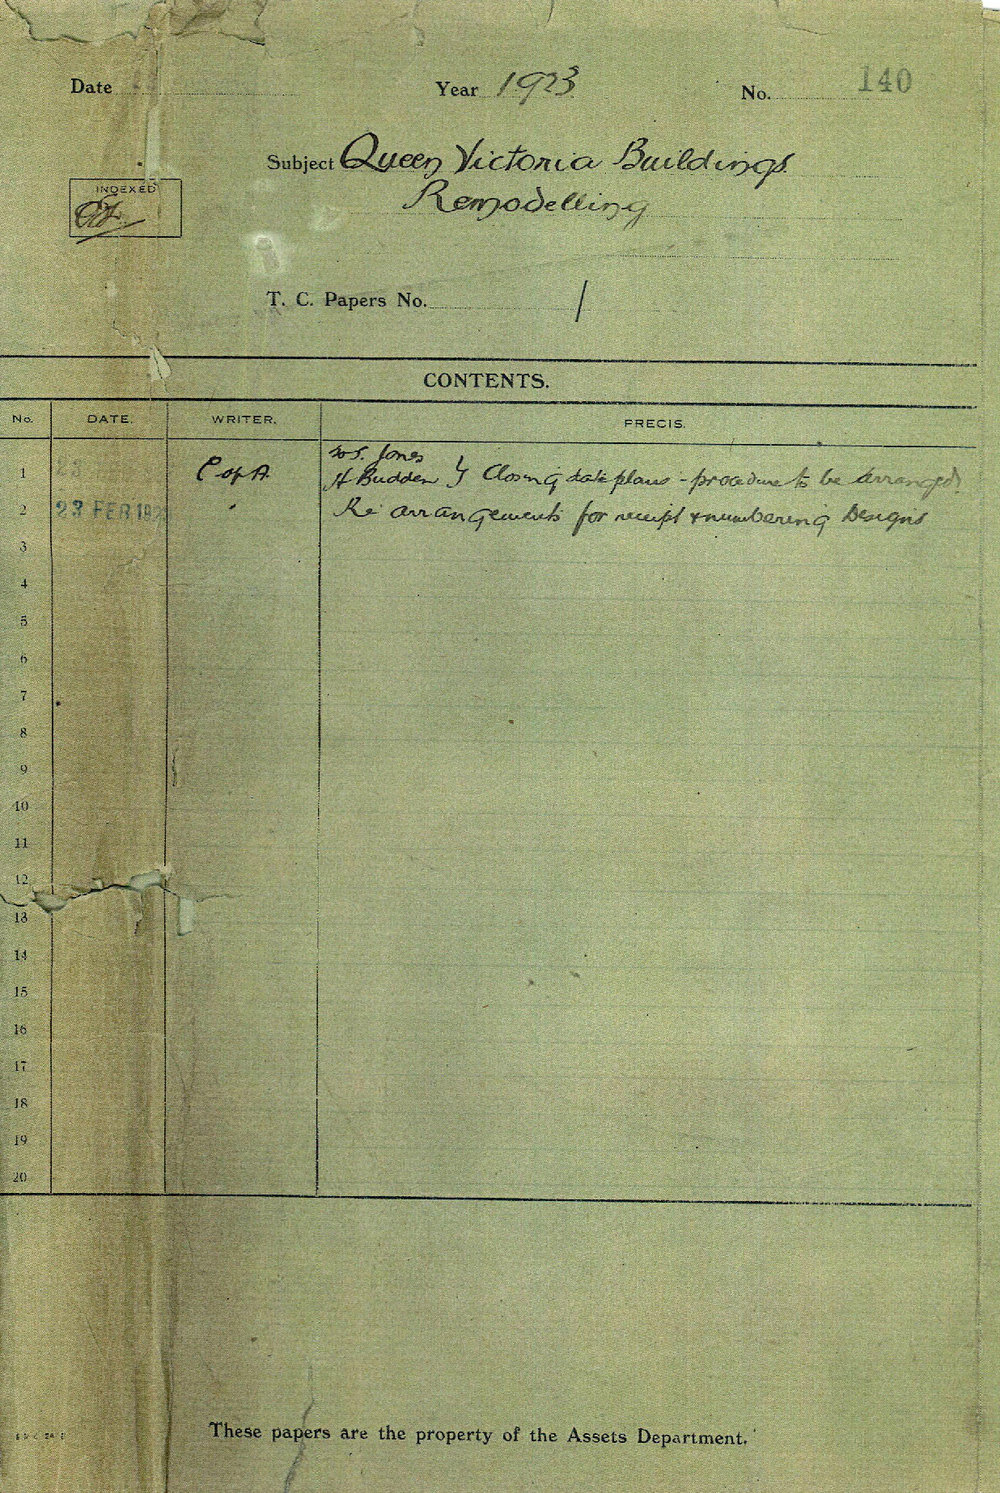 Date Year 1923 No. 140
Subject Queen Victoria Buildings.
Remodelling
INDEXED
T. C. Papers No. 1
CONTENTS.
No. DATE. WRITER. PRECIS.
W. S. Jones
1 23 C of A H Budden } Closing date plans - procedure to be arranged.
2 23 FEB 192 " Re arrangements for receipt & numbering Designs
3
4
5
6
7
8
9
10
11
12
13
14
15
16
17
18
19
20
These papers are the property of the Assets Department.